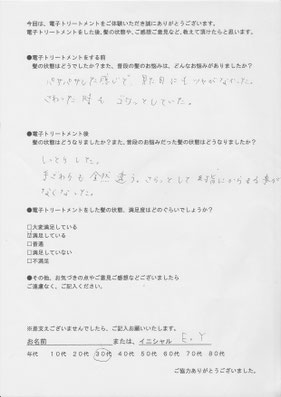 今回は、電子トリートメントをご体験いただき誠にありがとうございます。
電子トリートメントをした後、髪の状態や、ご感想ご意見など、教えて頂けたらと思います。
●電子トリートメントをする前
髪の状態はどうでしたか？また、普段の髪のお悩みは、どんな悩みがありましたか？
パサパサした感じで、見た目にもツヤがなかった。
さわった時も ごわっとしていた。
●電子トリートメント後
髪の状態はどうなりましたか？また、普段のお悩みだった髪の状態はどうなりましたか？
しっとりした。
手ざわりも 全然 違う。さらっとして 手指にからまる事が
なくなった。
●電子トリートメントをした髪の状態、満足度はどのぐらいでしょうか？
□大変満足している
☑満足している
□普通
□満足していない
□不満足
●その他、お気づきの点やご意見ご感想などございましたら
ご遠慮なく、ご記入ください。
※差支えございませんでしたら、ご記入お願いいたします。
お名前 または、イニシャル E.Y
年代 10代 20代 30代 40代 50代 60代 70代 80代
ご協力ありがとうございました。